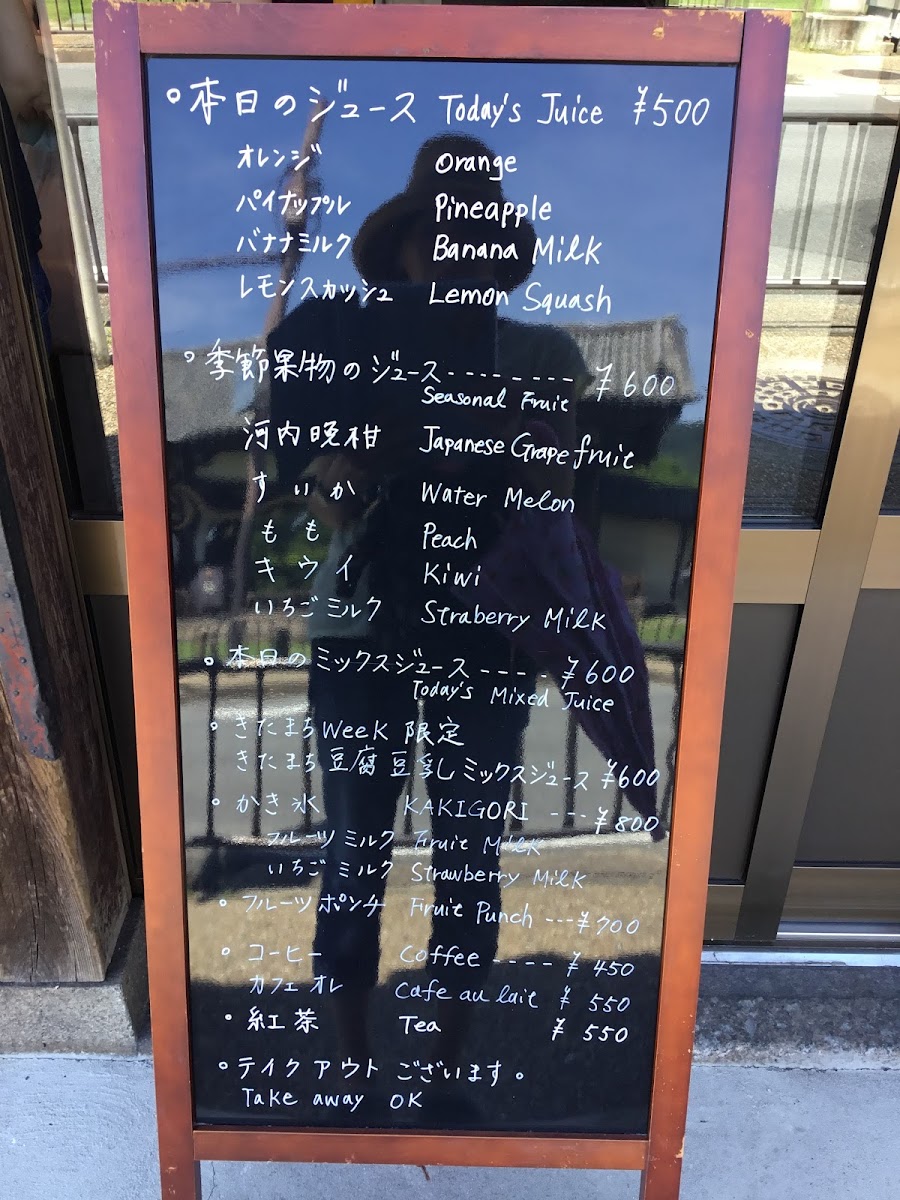 。本日のジュース Today's Juice ¥500
オレンジ Orange
パイナップル Pineapple
バナナミルク Banana Milk
レモンスカッシュ Lemon Squash
。季節果物のジュース--------- ¥600
Seasonal Fruit
河内晩柑 Japanese Grapefruit
すいか Water Melon
もも Peach
キウイ Kiwi
いちごミルク Straberry Milk
。本日のミックスジュース ---- ¥600
Today's Mixed Juice
。きたまちWeeK 限定
きたまち豆腐豆乳ミックスジュース ¥600
。かき氷 KAKIGORI --- ¥800
フルーツミルク Fruit Milk
いちごミルク Strawberry Milk
。フルーツポンチ Fruit Punch --- ¥700
。コーヒー Coffee ---- ¥450
カフェオレ Cafe au lait ¥550
・紅茶 Tea ¥550
。テイクアウトございます。
Take away OK